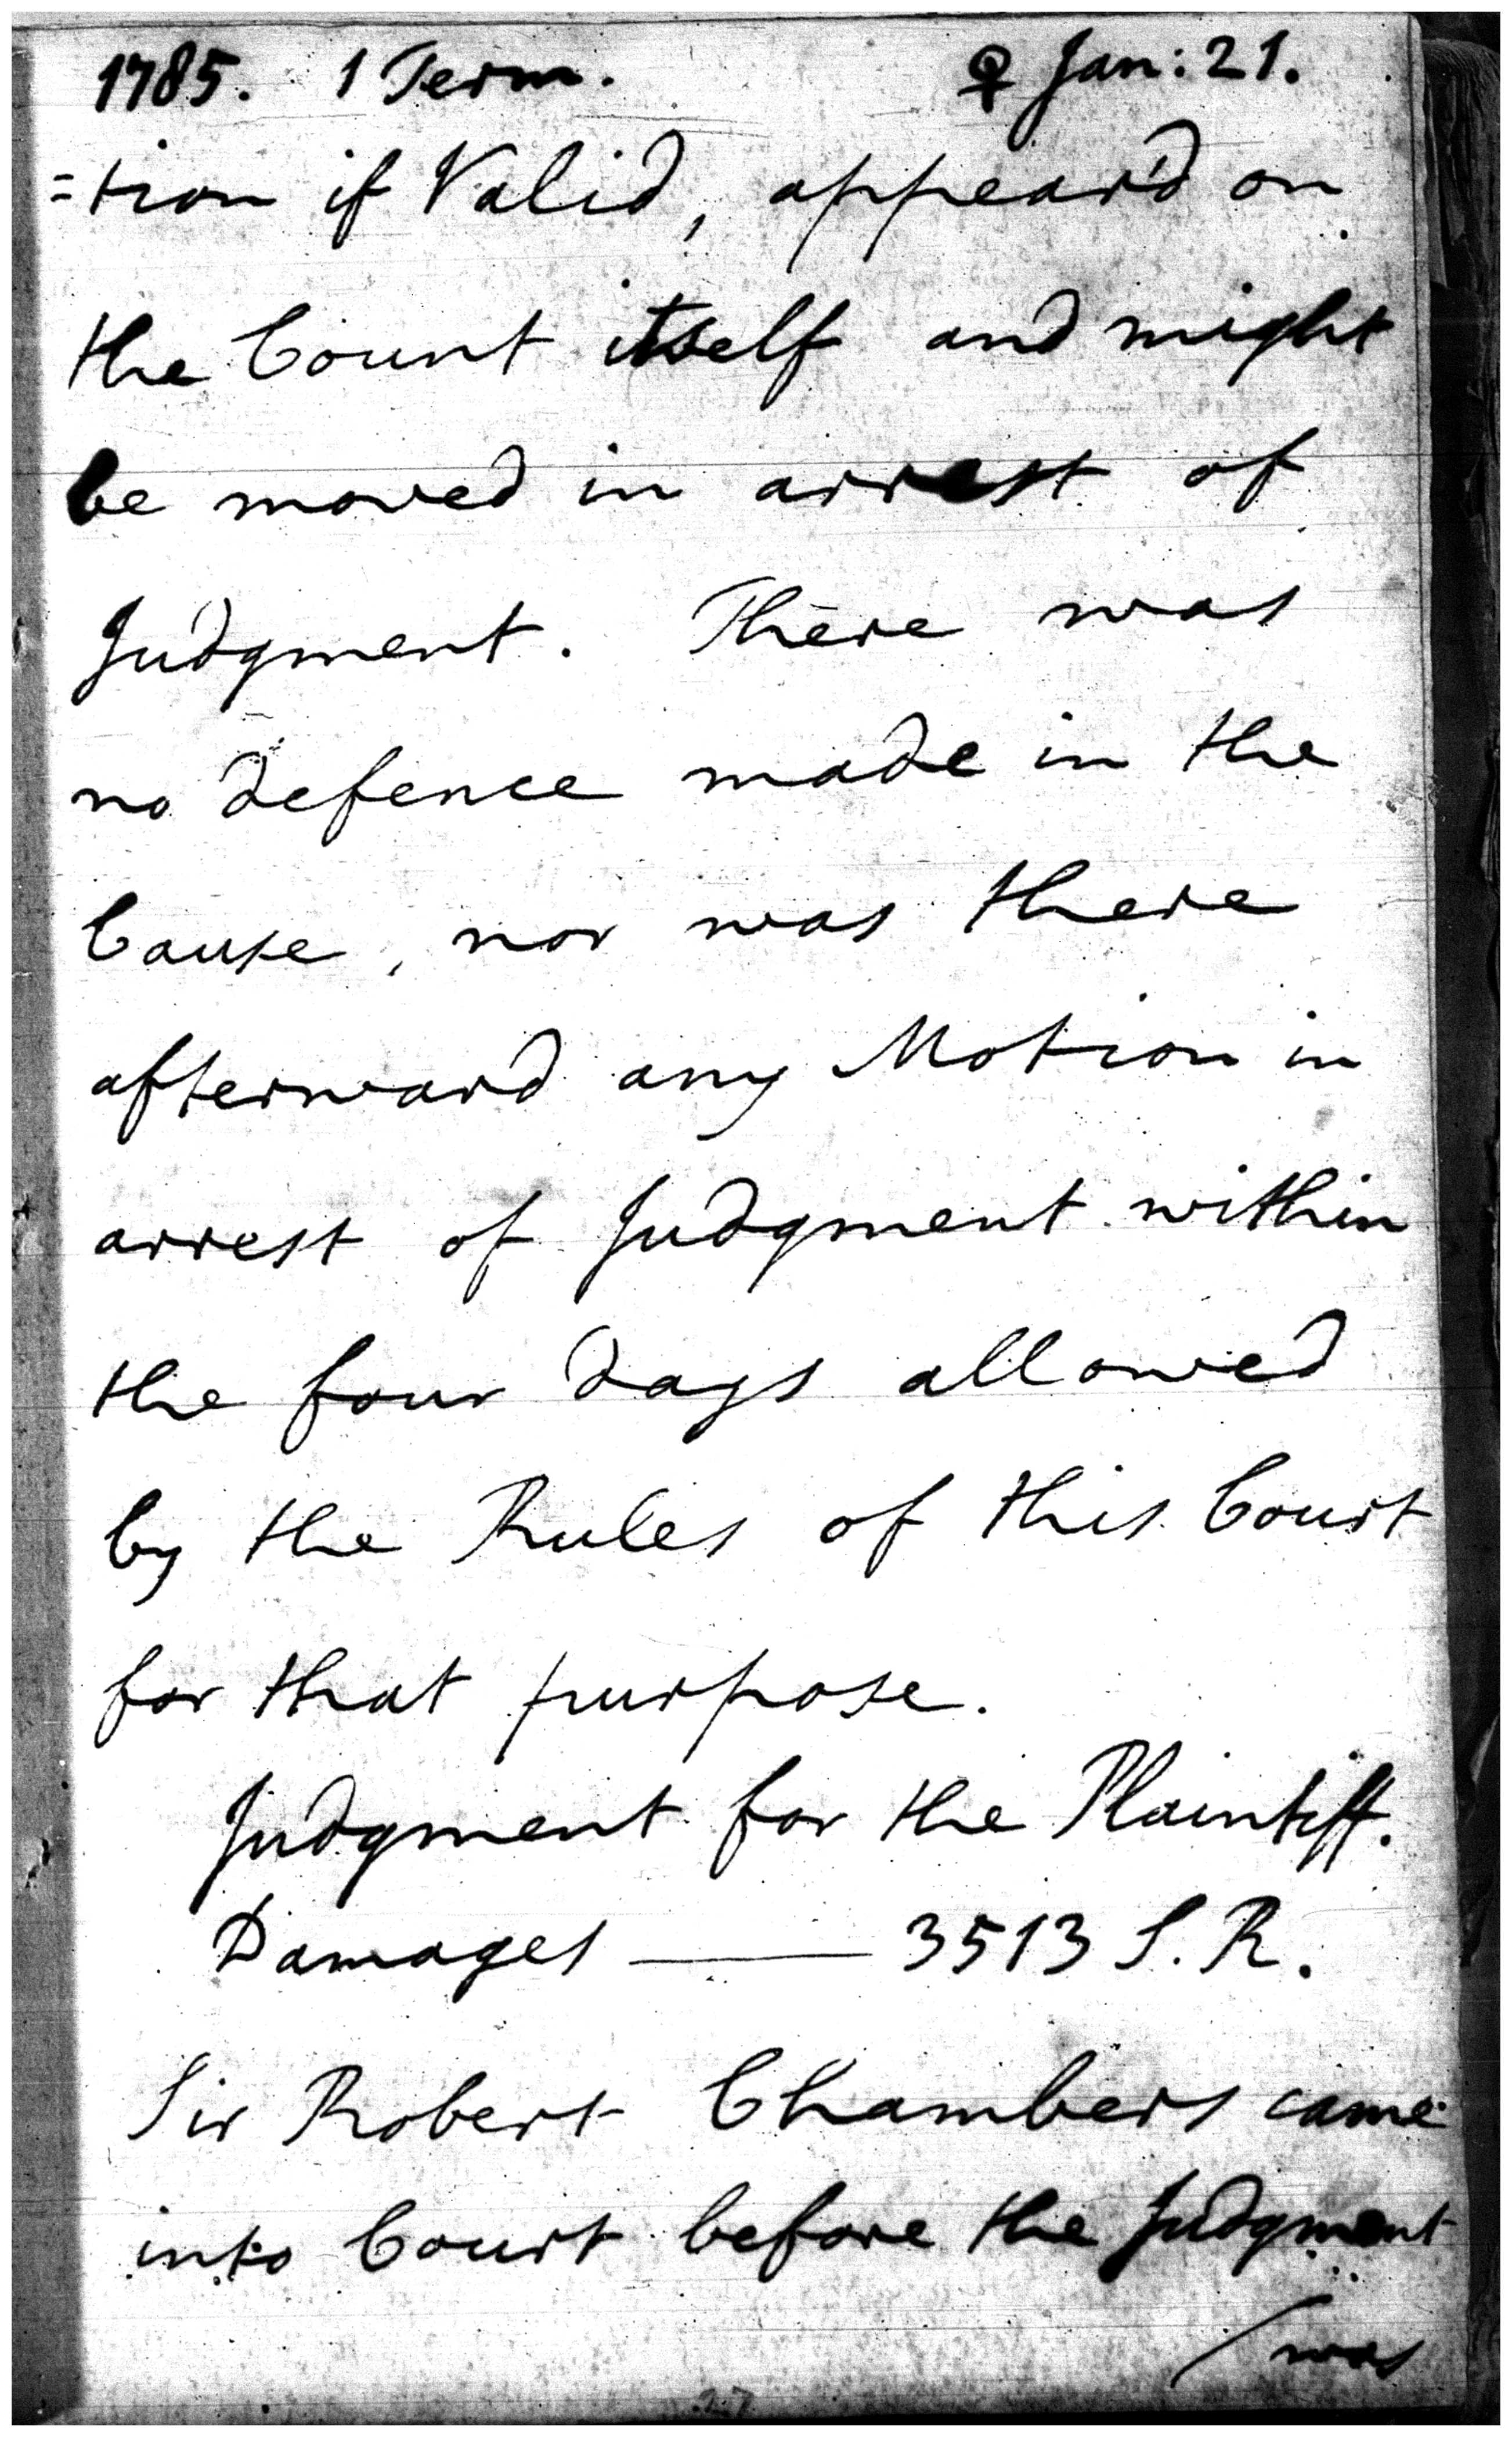 1785. 1 Term. ♀ Jan: 21.
=tion if Valid, appear'd on
the Count itself and might
be moved in arrest of
Judgment. There was
no defence made in the
Cause, nor was there
afterward any Motion in
arrest of Judgment within
the four days allowed
by the Rules of this Court
for that purpose.
Judgment for the Plaintiff.
Damages — 3513 S. R.
Sir Robert Chambers came
into Court before the Judgment
/ was
27